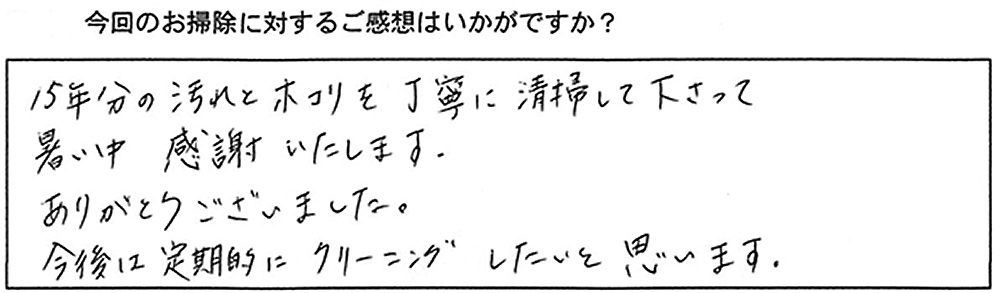 今回のお掃除に対するご感想はいかがですか？
15年分の汚れとホコリを丁寧に清掃して下さって
暑い中 感謝いたします.
ありがとうございました。
今後は定期的にクリーニングしたいと思います.